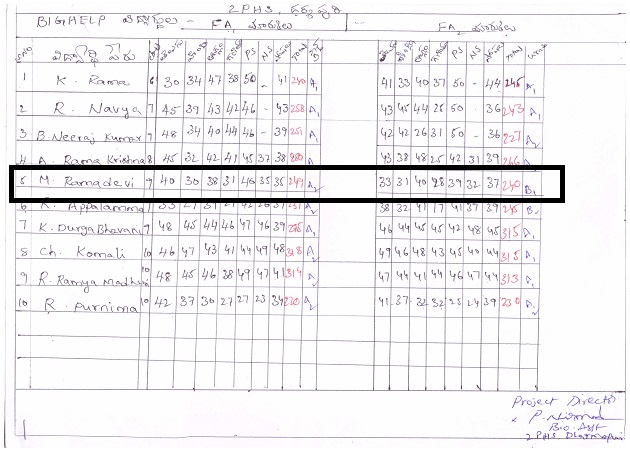 ZPHS, ధర్మపురి
BIGHELP విద్యార్థులు - FA మార్కులు FA మార్కులు
విద్యార్థి పేరు PS N.S TOTAL PS N.S TOTAL
1 K. Rama 6 30 34 47 38 50 - 41 240 A1 41 33 40 37 50 - 44 245 A1
2 R. Navya 7 45 39 43 42 46 - 43 258 A1 43 45 44 26 50 - 36 243 A1
3 B. Neeraj Kumar 7 48 34 40 44 46 - 39 251 A1 42 42 26 31 50 - 36 227 A2
4 A. Rama Krishna 8 45 32 42 41 45 37 38 280 43 38 48 25 42 31 39 266 A2
5 M. Ramadevi 9 40 30 38 31 40 35 35 249 A2 33 31 40 28 39 32 37 240 B1
6 R. Appalamma 38 32 41 17 41 37 39 245 B1
7 K. Durga Bhavani 9 48 45 44 46 47 46 39 A1 46 44 45 45 42 48 45 315 A1
8 Ch. Komali 10 46 47 43 41 44 49 48 318 A1 49 46 48 43 45 40 44 315 A1
9 R. Ramya Madhuri 10 48 45 46 38 49 47 41 314 A1 47 44 41 44 46 47 44 313 A1
10 R. Purnima 10 42 37 30 27 27 23 34 220 A2 41 37 32 32 25 24 39 230 A2
Project Director
P.
Bio. Asst
ZPHS Dharmapuri